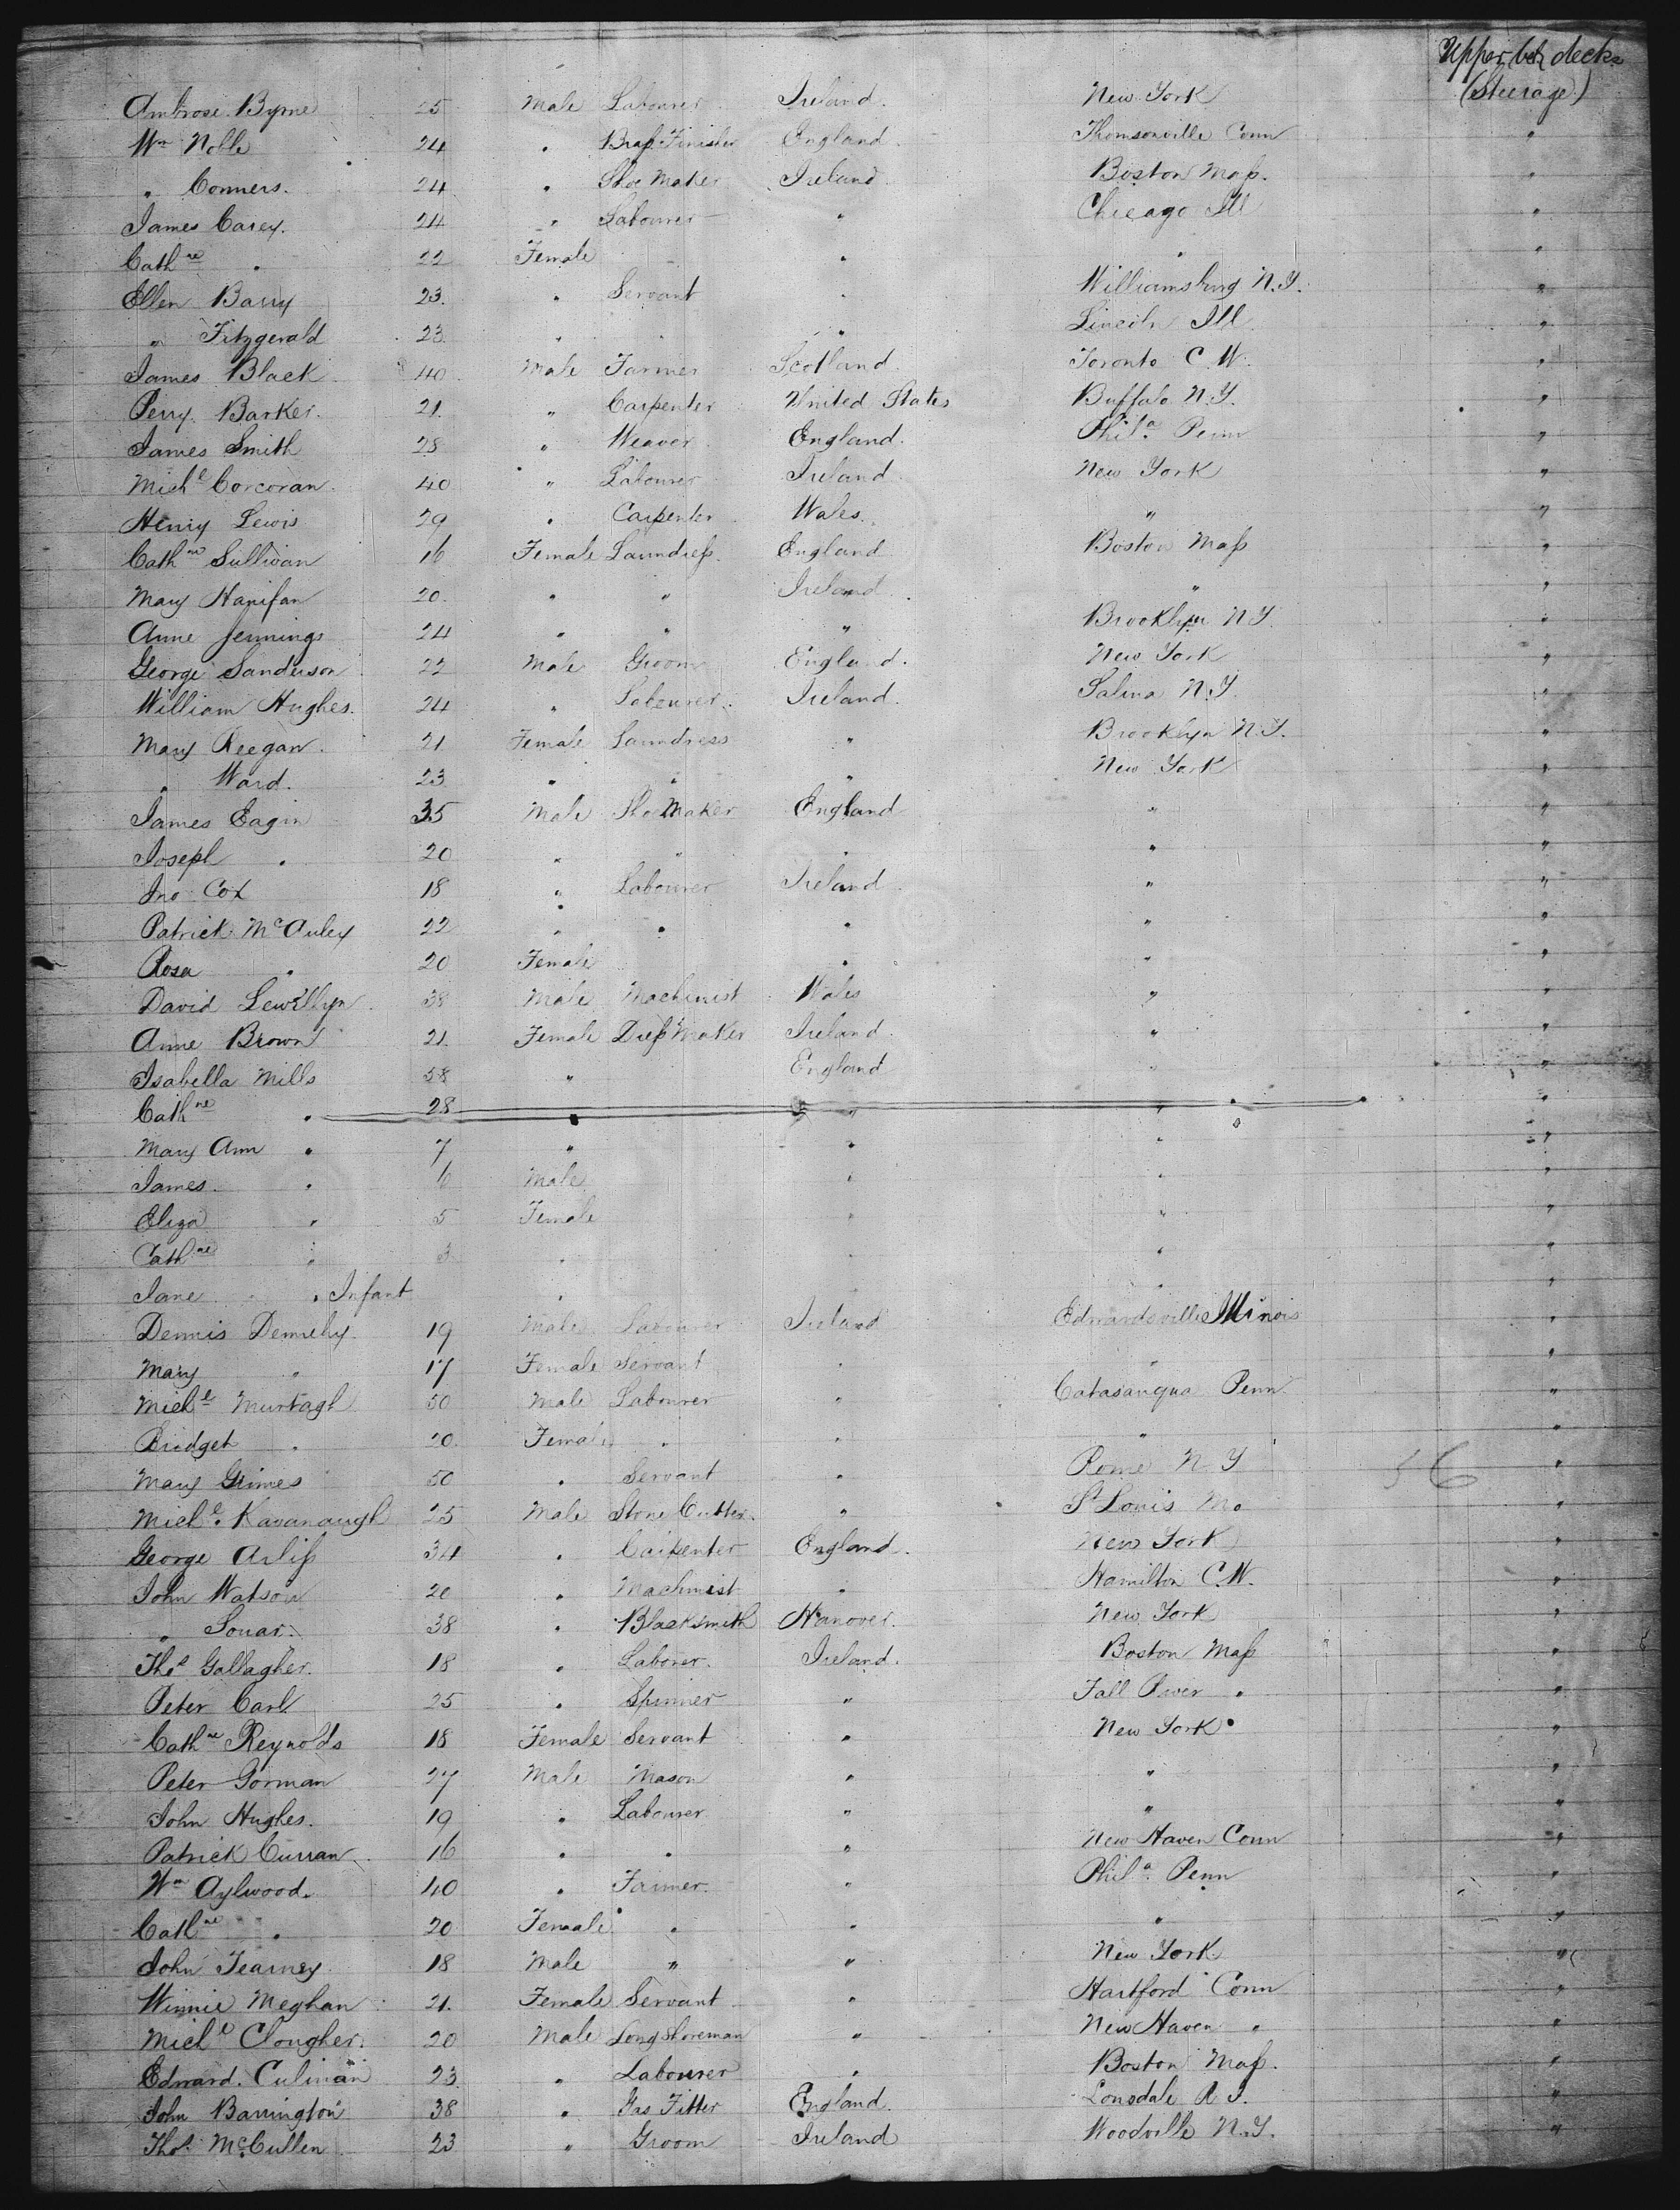 Upper bet decks
(Steerage)
Ambrose Byrne 25 Male Labourer Ireland New York
Wm Noble 24 " Brass Finisher England Thomsonville Conn "
" Conners 24 " Shoe Maker Ireland Boston Mass. "
James Carey 24 " Labourer " Chicago Ill "
Cathne " 22 Female " " "
Ellen Barry 23 " Servant " Williamsburg N.Y. "
" Fitzgerald 23 " " " Lincoln Ill "
James Black 40 Male Farmer Scotland Toronto C.W. "
Perry Barker 21 " Carpenter United States Buffalo N.Y. "
James Smith 28 " Weaver England Phila Penn "
Michl Corcoran 40 " Labourer Ireland New York "
Henry Lewis 29 " Carpenter Wales " "
Cathne Sullivan 16 Female Laundress England Boston Mass "
Mary Hanifan 20 " " Ireland " "
Anne Jennings 24 " " " Brooklyn N.Y. "
George Sanderson 22 Male Groom England New York "
William Hughes 24 " Labourer Ireland Salina N.Y. "
Mary Keegan 21 Female Laundress " Brooklyn N.Y. "
" Ward 23 " " " New York "
James Eagin 35 Male Shoe Maker England " "
Joseph " 20 " " " " "
Jno Cox 18 " Labourer Ireland " "
Patrick McAuley 22 " " " " "
Rosa " 20 Female " " "
David Lewellyn 38 Male Machinist Wales " "
Anne Brown 21 Female Dress Maker Ireland " "
Isabella Mills 58 " England " "
Cathne " 28 " " " "
Mary Ann " 7 " " " "
James " 6 Male " " "
Eliza " 5 Female " " "
Cathne " 3 " " " "
Jane " Infant " " " "
Dennis Dennehy 19 Male Labourer Ireland Edwardsville Illinois "
Mary " 17 Female Servant " " "
Michl Murtagh 50 Male Labourer " Catasauqua Penn "
Bridget " 20 Female " " " "
Mary Grimes 50 " Servant " Rome N.Y "
56
Michl Kavanaugh 25 Male Stone Cutter " St Louis Mo "
George Arliss 34 " Carpenter England New York "
John Watson 20 " Machinist " Hamilton C.W. "
" Souar 38 " Blacksmith Hanover New York "
Thos Gallagher 18 " Laborer Ireland Boston Mass "
Peter Carl 25 " Spinner " Fall River " "
Cathne Reynolds 18 Female Servant " New York "
Peter Gorman 27 Male Mason " " "
John Hughes 19 " Labourer " " "
Patrick Curran 16 " " " New Haven Conn "
Wm Aylwood 40 " Farmer " Phila Penn "
Cathne " 20 Female " " " "
John Tearney 18 Male " " New York "
Winnie Meghan 21 Female Servant " Hartford Conn "
Michl Clougher 20 Male Longshoreman " New Haven " "
Edward Culinan 23 " Labourer " Boston Mass. "
John Barrington 38 " Gas Fitter England Lonsdale R.I. "
Thos McCullen 23 " Groom Ireland Woodville N.Y. "